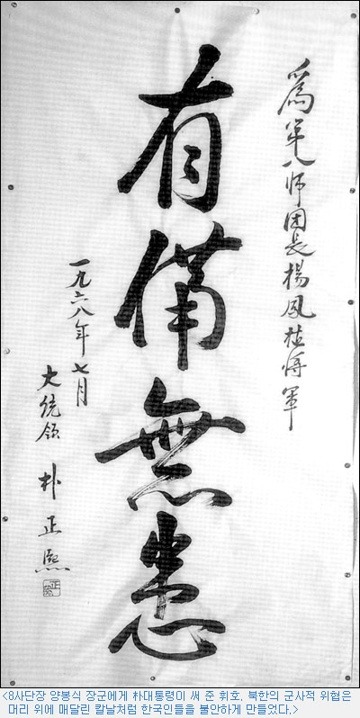 爲第八師團長楊鳳植將軍
有備無患
一九六八年七月
大統領 朴正熙
<8사단장 양봉식 장군에게 朴대통령이 써 준 휘호. 북한의 군사적 위협은
머리 위에 매달린 칼날처럼 한국인들을 불안하게 만들었다.>